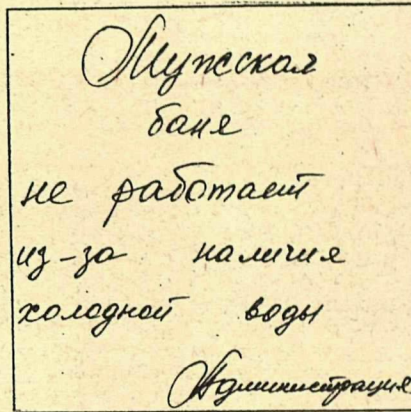 Мужская
баня
не работает
из-за наличия
холодной воды
Администрация